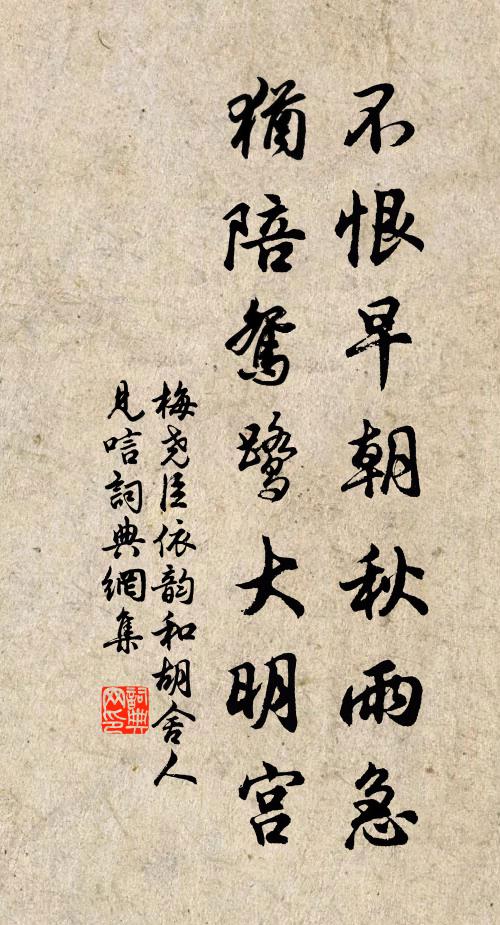 不恨早朝秋雨急
猶陪鴛鷺大明宮
梅尧臣依韵和胡舍人
見唁詞典網集
詞典
网印